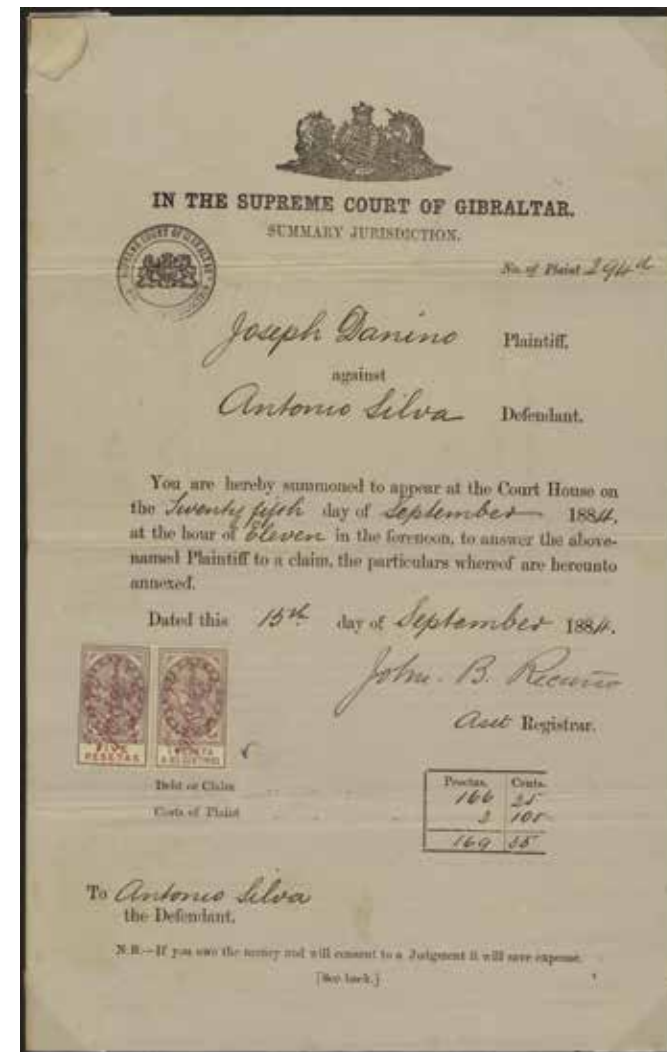 IN THE SUPREME COURT OF GIBRALTAR.
SUMMARY JURISDICTION.
SUPREME COURT OF GIBRALTAR
No. of Plaint 294
Joseph Danino Plaintiff,
against
Antonio Silva Defendant.
You are hereby summoned to appear at the Court House on
the Twenty fifth day of September 1884,
at the hour of Eleven in the forenoon, to answer the above-
named Plaintiff to a claim, the particulars whereof are hereunto
annexed.
Dated this 15th day of September 1884.
John. B.
Asst Registrar.
FIVE
PESETAS
Debt or Claim
Costs of Plaint
Pesetas. Cents.
166 25
169 35
To Antonio Silva
the Defendant.
N.B.—If you owe the money and will consent to a Judgment it will save expense.
[See back.]